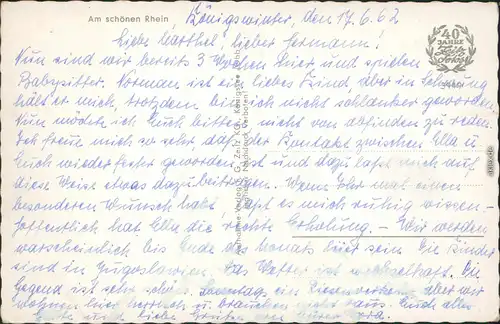 Am schönen Rhein
Königswinter, den 17.6.62
Liebe Marthel, lieber Hermann!
Nun sind wir bereits 3 Wochen hier und spielen
Babysitter. Norman ist ein liebes Kind, aber in Schwung
hält er mich, trotzdem bin ich nicht schlanker geworden.
Nun möchte ich Euch bitten nicht von abfinden zu reden.
Ich freue mich so sehr, daß der Kontakt zwischen Ella u.
Euch wieder hergeworden ist und dazu laßt mich auf
diese Weise etwas dazu beitragen. Wenn Ihr mal einen
besonderen Wunsch habt, laßt es mich ruhig wissen –
hoffentlich hat Ella die rechte Erholung. – Wir werden
warscheinlich bis Ende des Monats hier sein. Die Kinder
sind in Jugoslawien. Das Wetter ist wechselhaft. Die
Gegend ist sehr schön, Sonntags ein Riesenverkehr, aber wir
wohnen hier herrlich u. brauchen nicht raus. Euch allen
Gute und liebe Grüße von
40
JAHRE